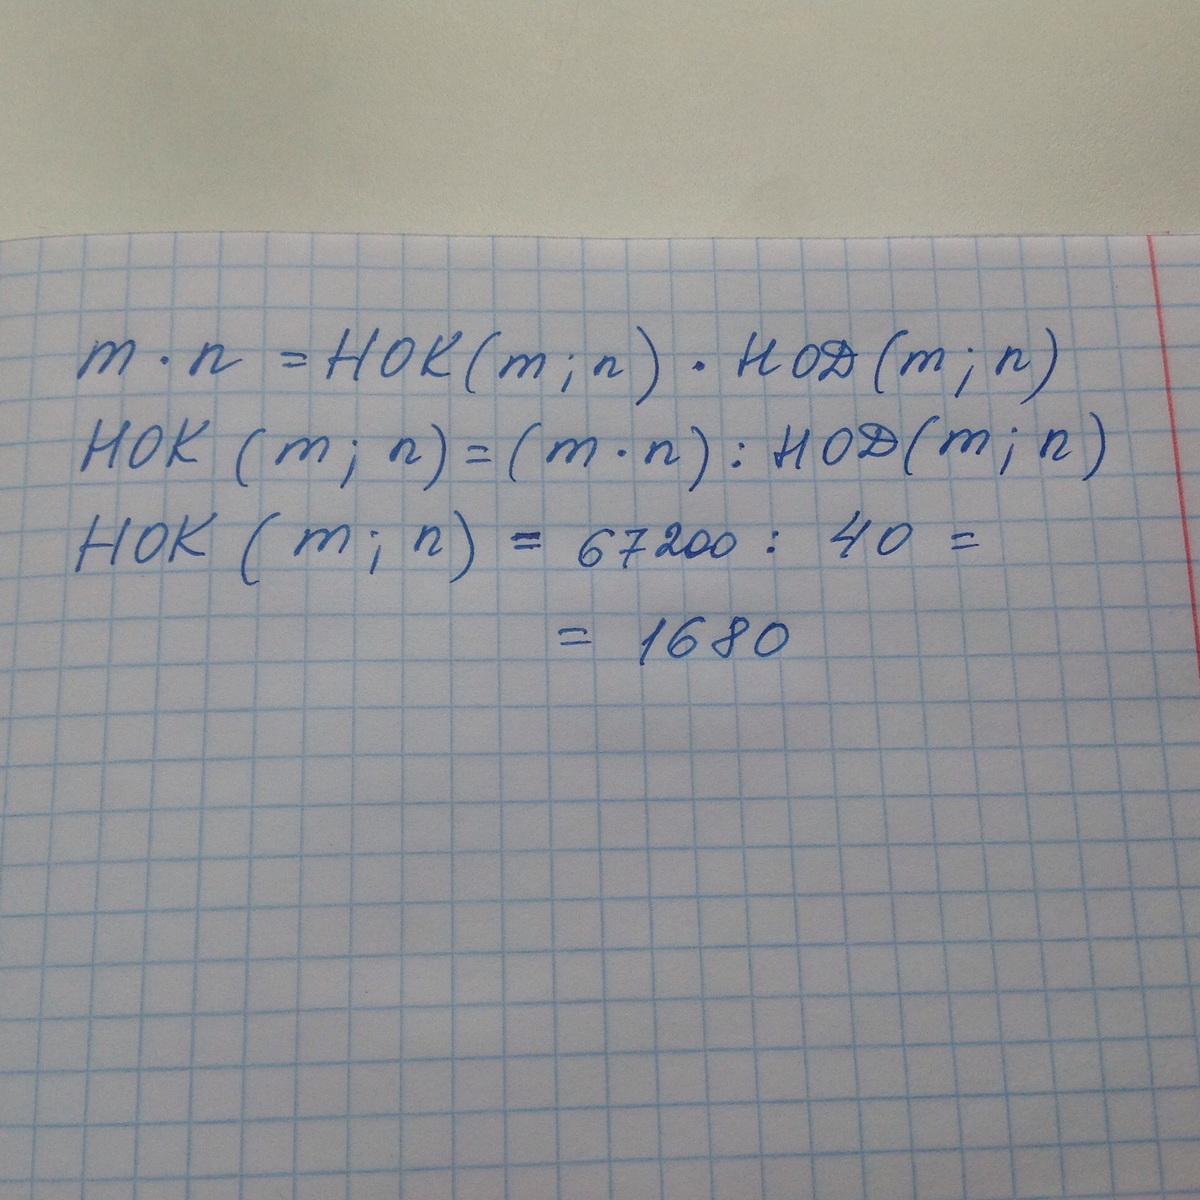 m · n = НОК(m; n) · НОД(m; n)
НОК (m; n) = (m · n) : НОД(m; n)
НОК (m; n) = 67200 : 40 =
= 1680